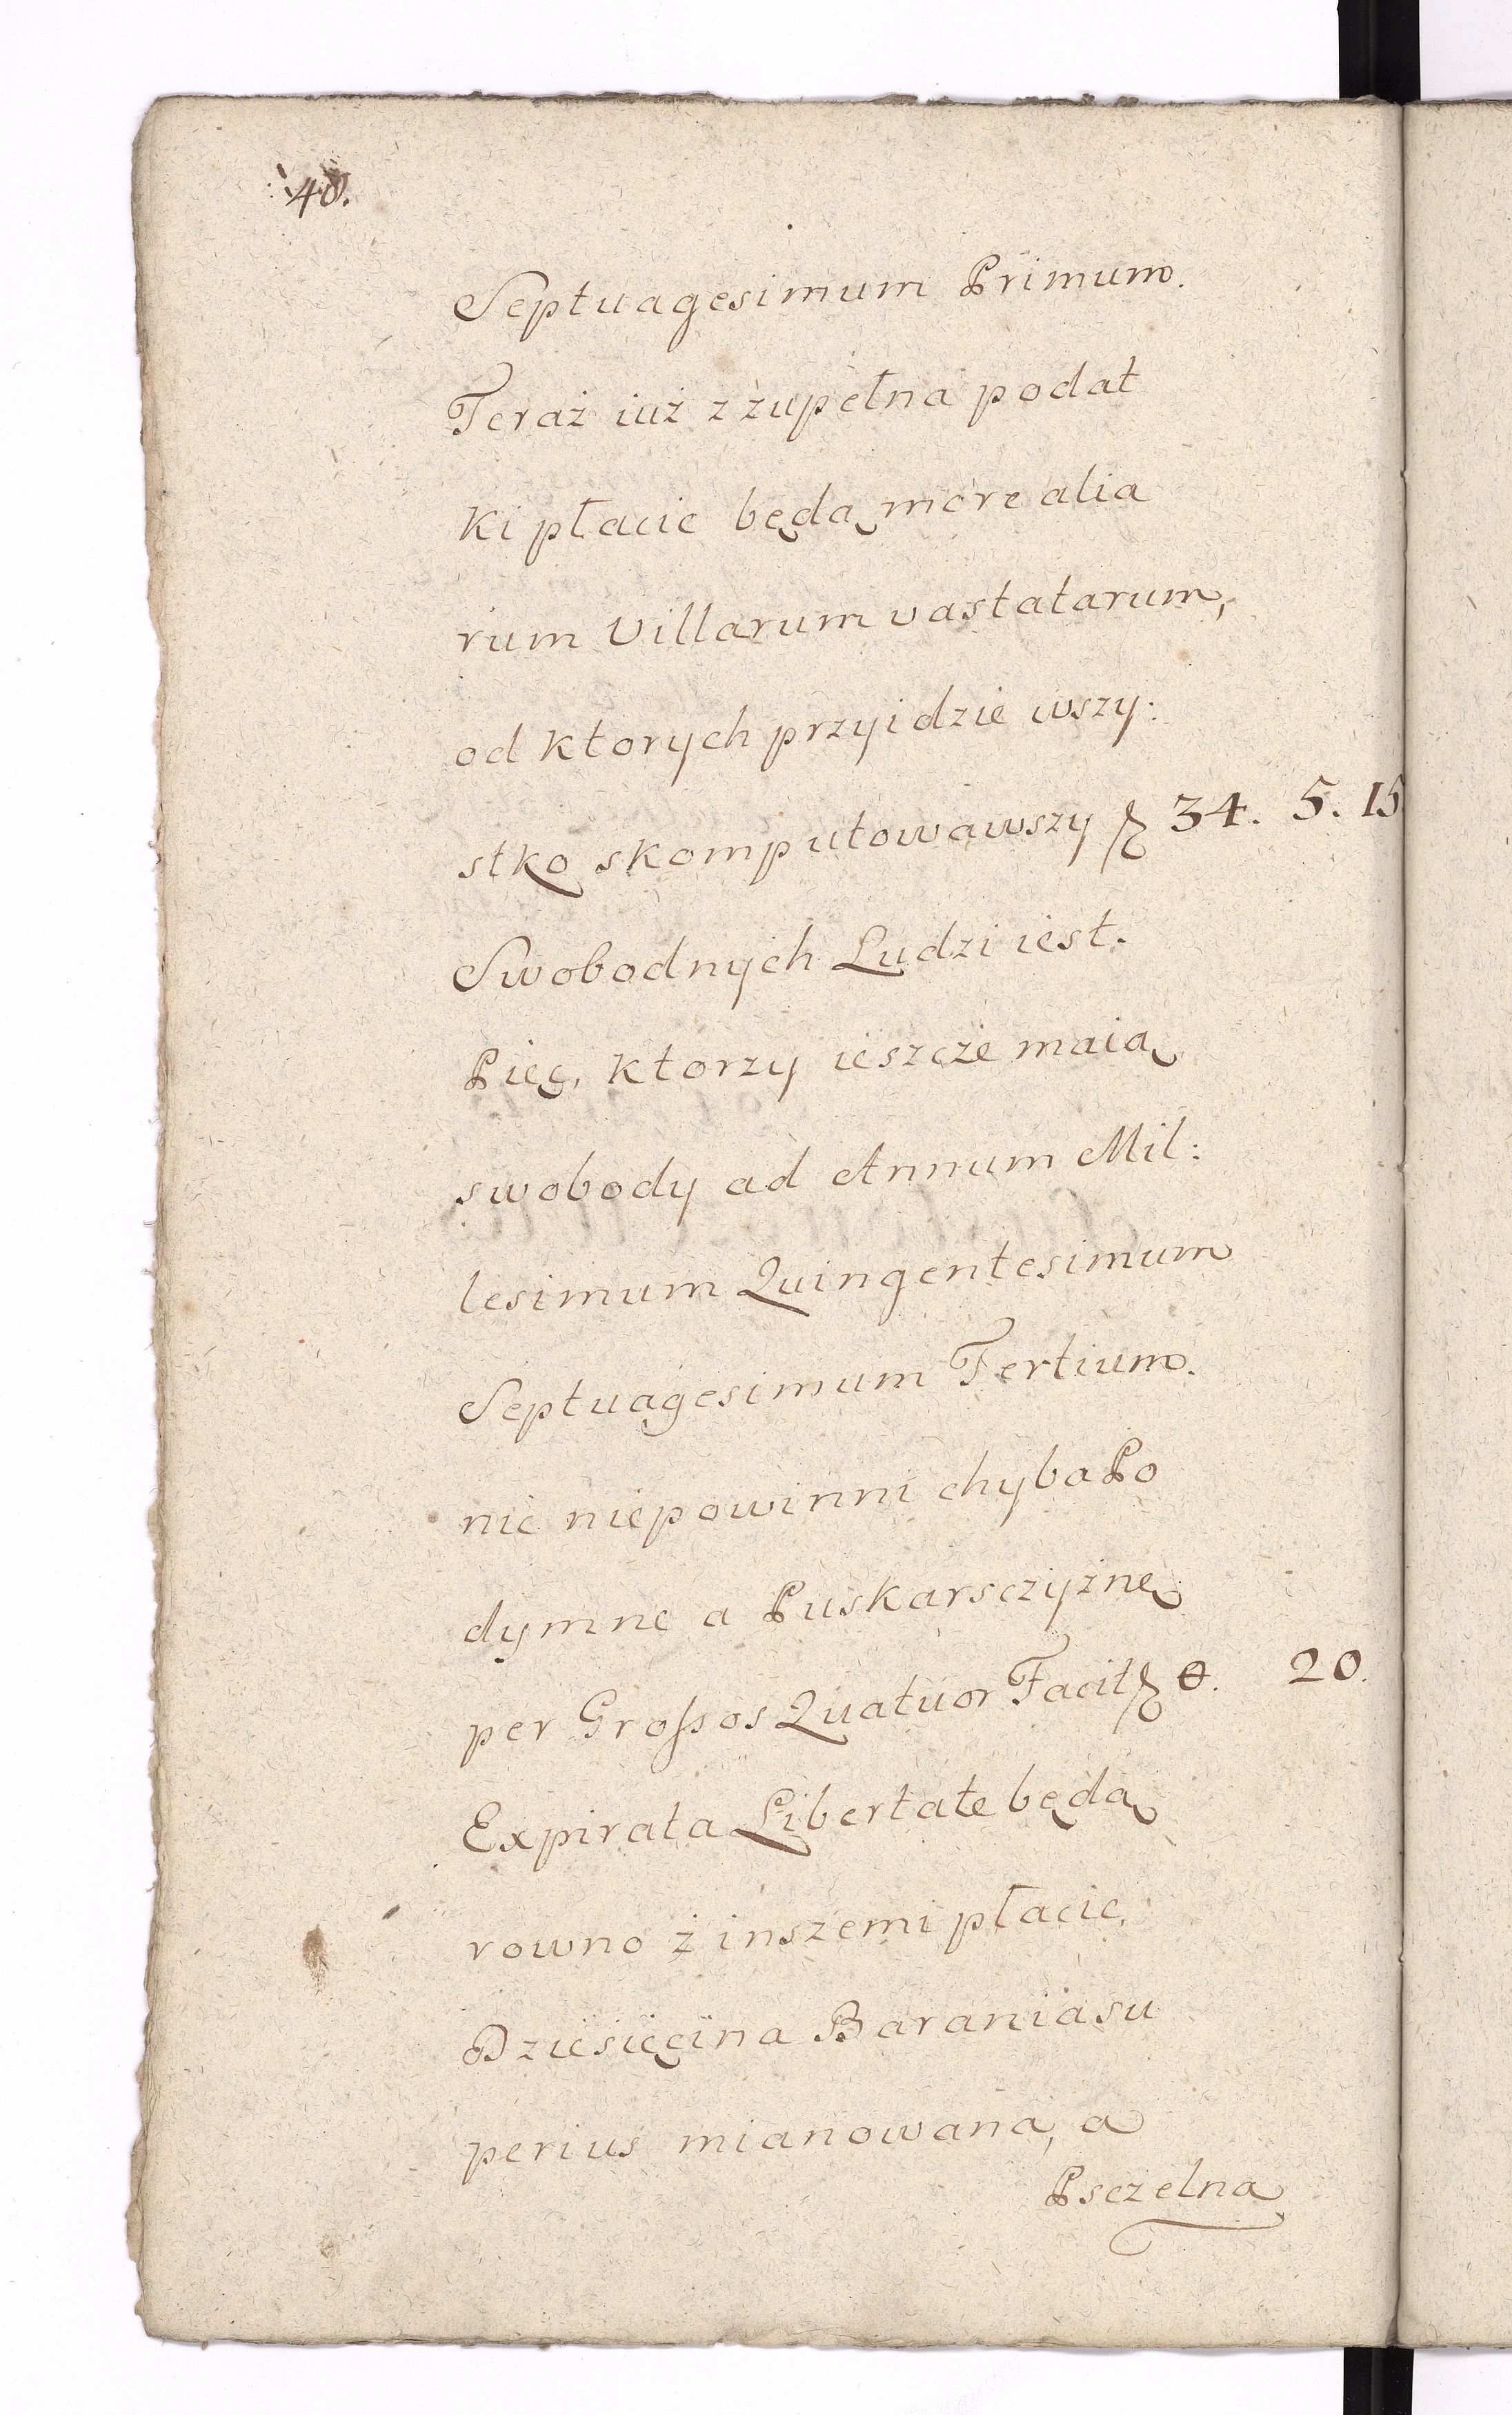 48.
Septuagesimum Primum.
Teraż iuż z żupełna podat
ki płacic będą more alia
rum villarum vastatarum,
od ktorych przyidzie wszy:
stko skomputowawszy ƒ 34. 5. 15
Swobodnych Ludzi iest.
Pięc, ktorzy ieszcże maią
swobody ad Annum Mil:
lesimum Quingentesimum
Septuagesimum Tertium.
nic niepowinni chyba Po
dymne a Puskarsczyżnę
per Großos Quatuor Facit ƒ 0. 20.
Expirata Libertate będą
rowno ż inszemi płacic.
Dziesięcina Barania su
perius mianowana, a
Psczelna